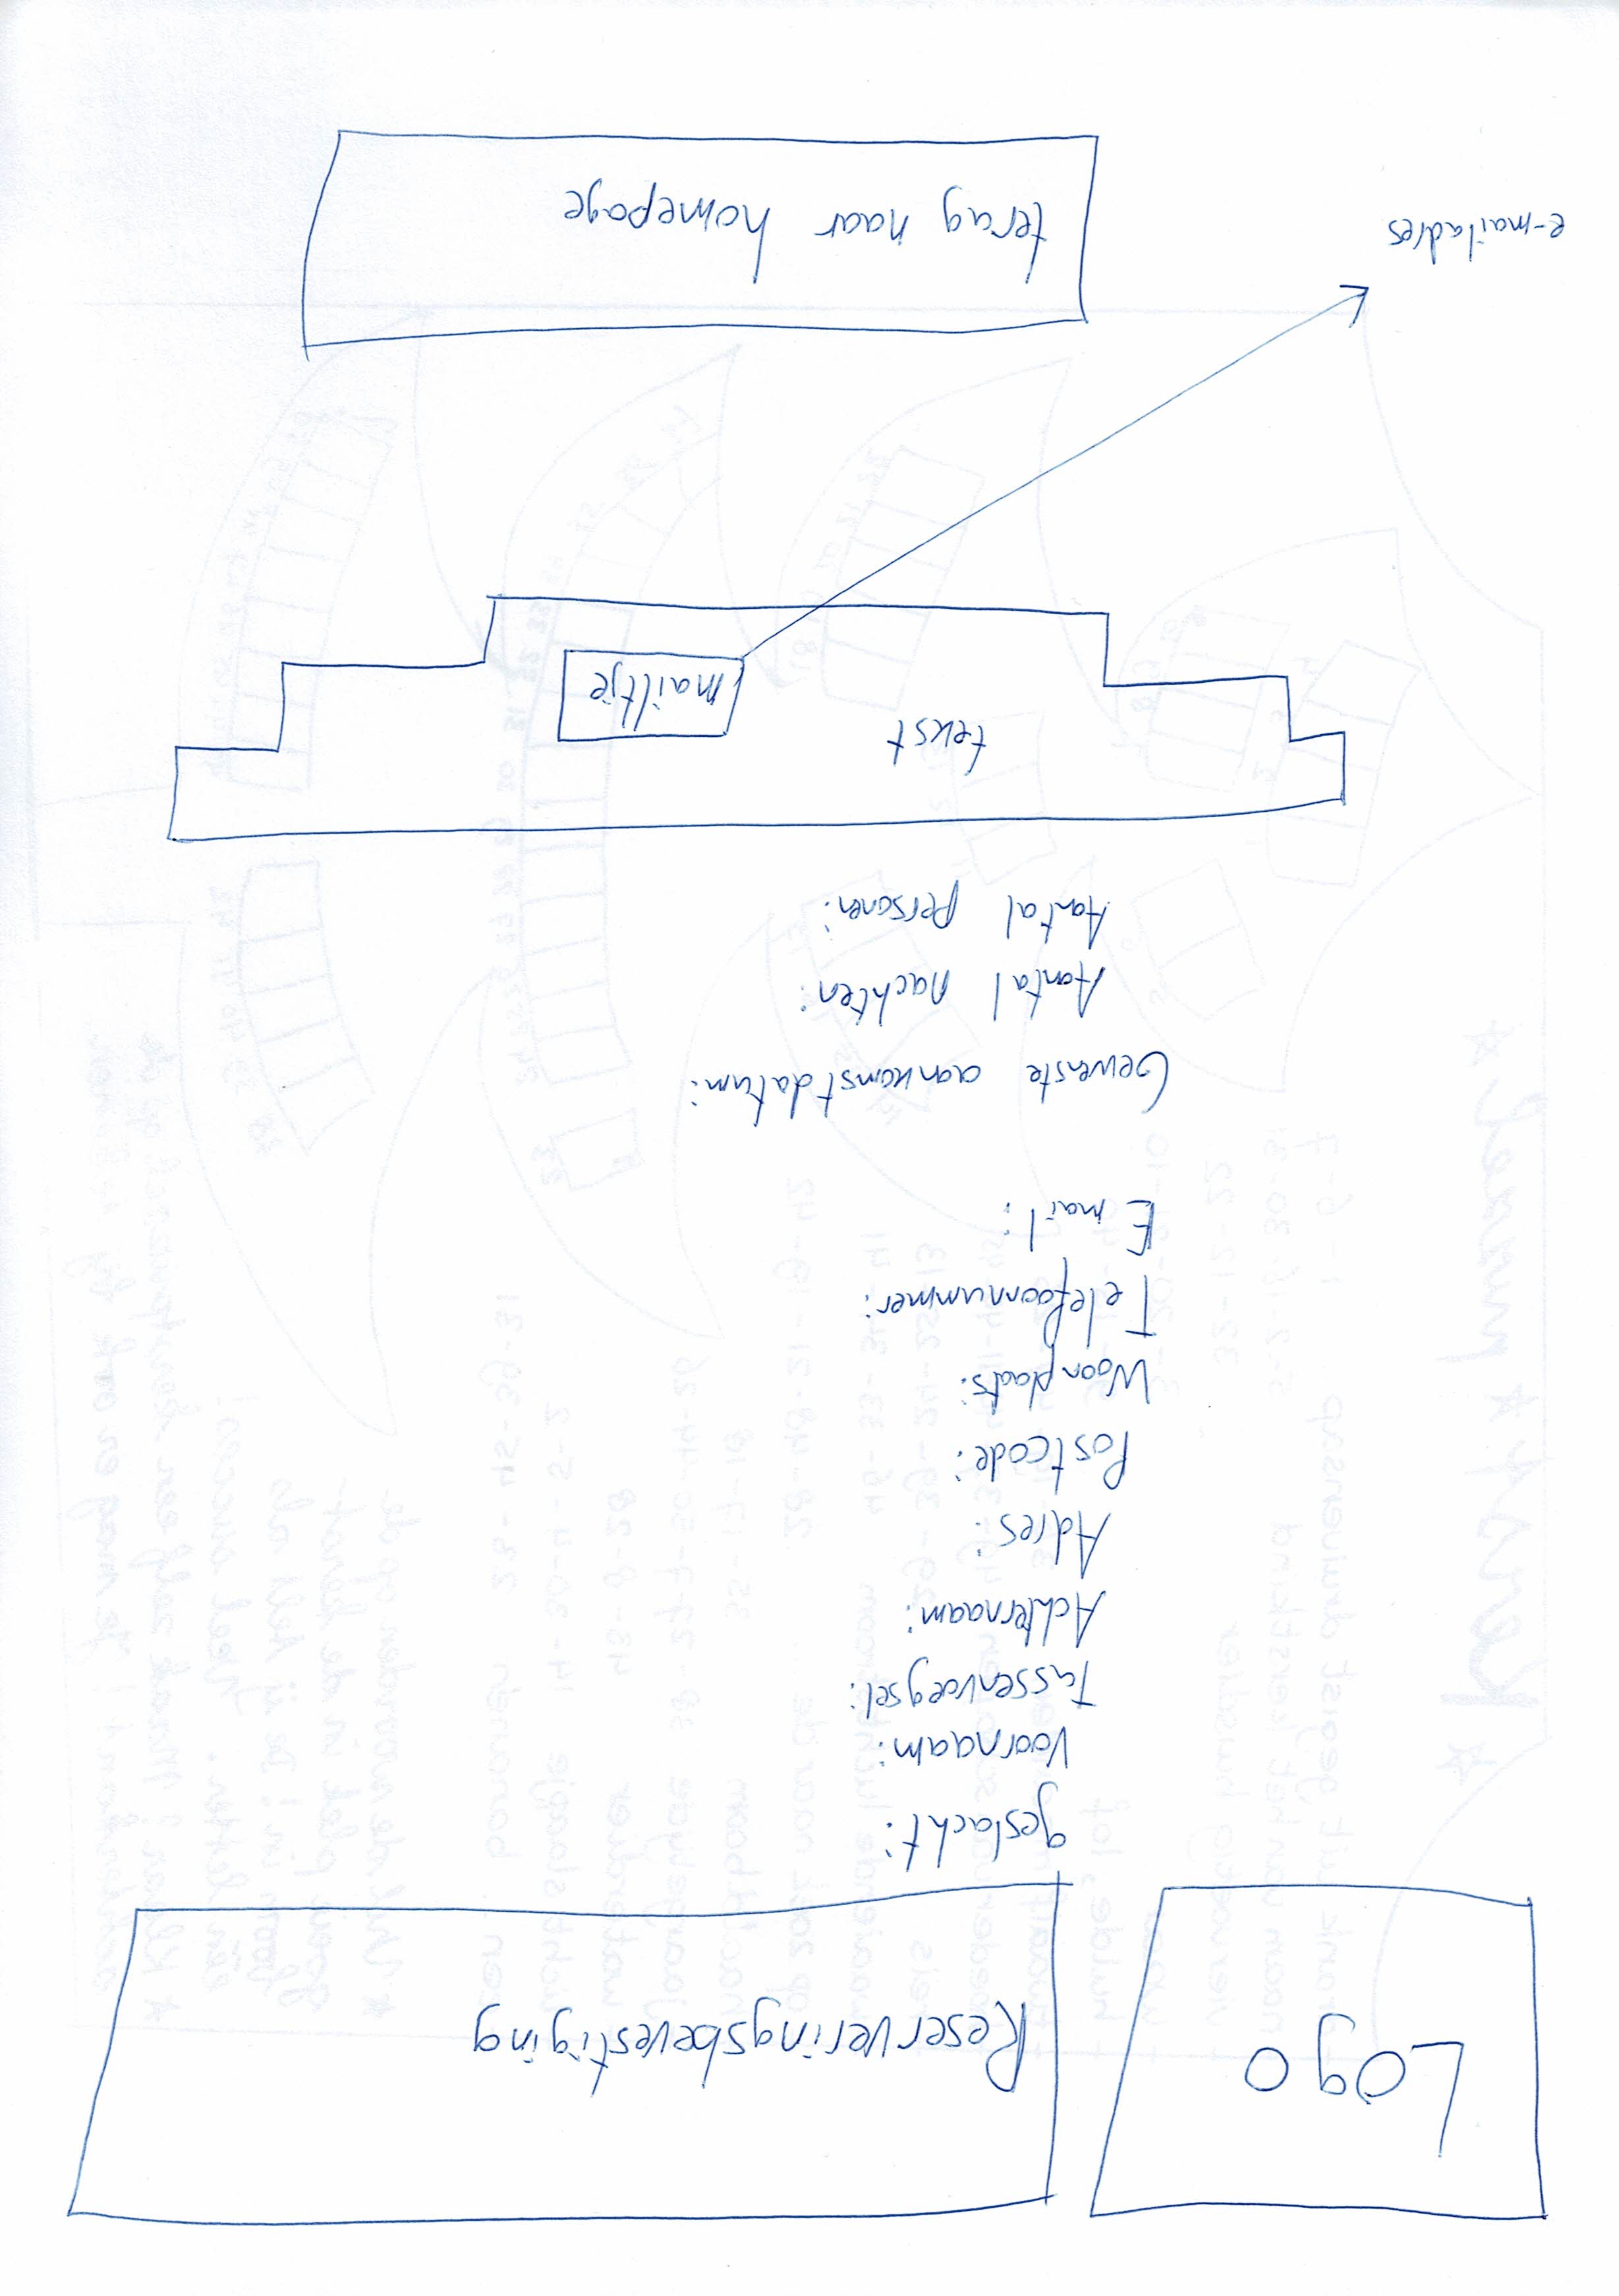 Logo
Reserveringsbevestiging
geslacht:
Voornaam:
Tussenvoegsel:
Achternaam:
Adres:
Postcode:
Woonplaats:
Telefoonnummer:
Email:
Gewenste aankomstdatum:
Aantal nachten:
Aantal personen:
tekst
mailtje
e-mailadres
terug naar homepage